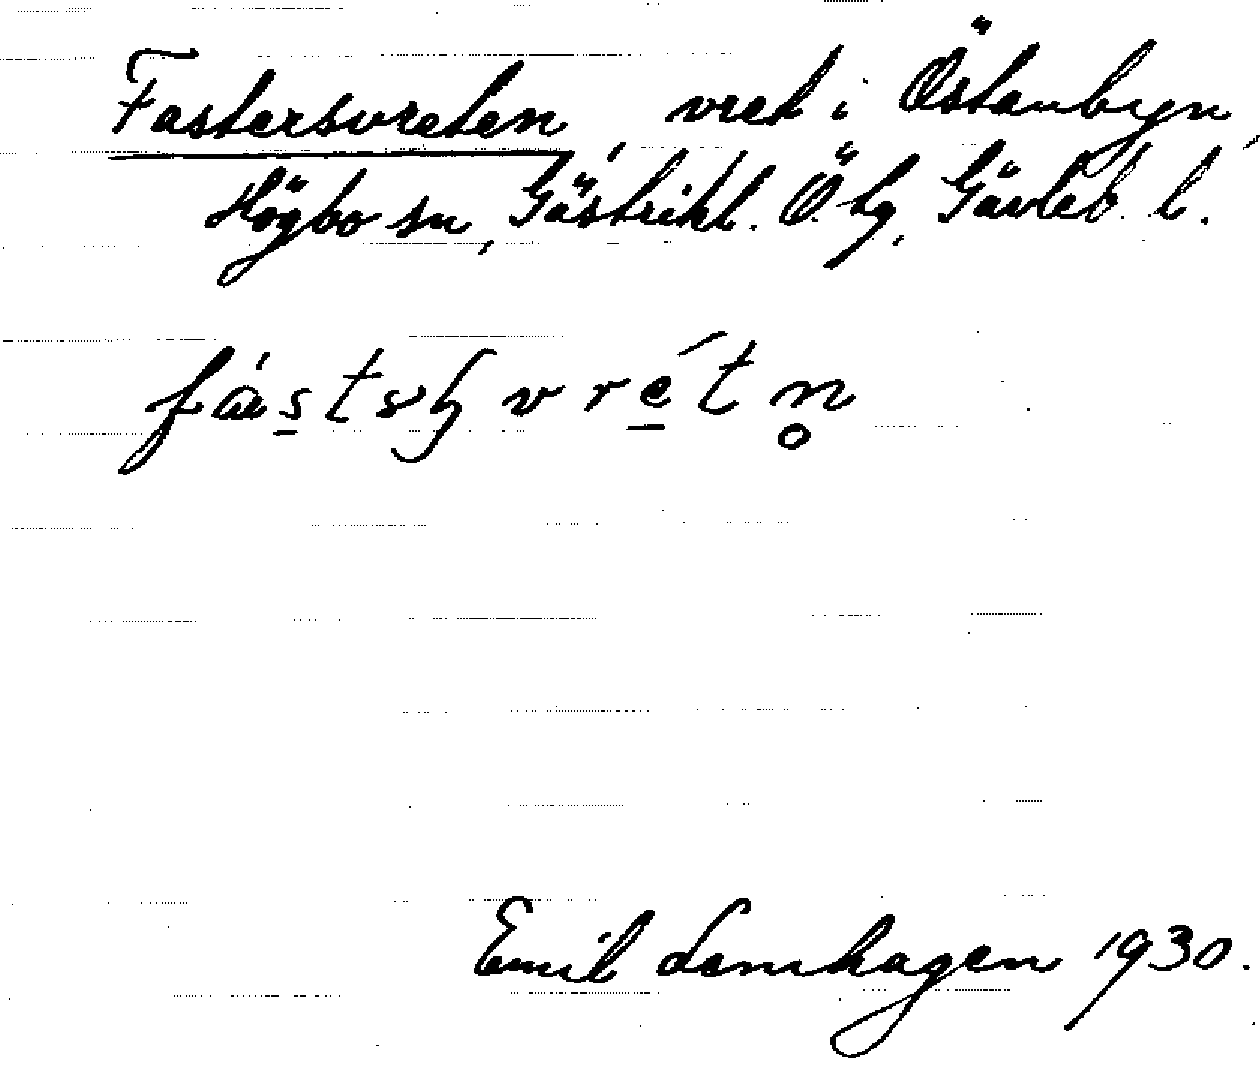 Fastersvreten, vret i Östanbyn,
Högbo sn, Gästrikl. Ö. tg, Gävleb. l.
Emil Lemhagen 1930.